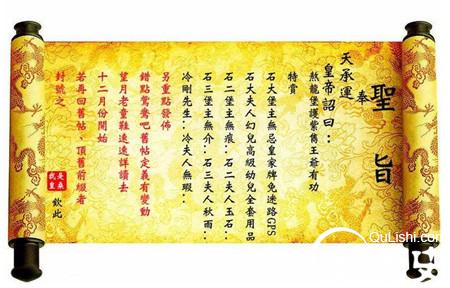 聖旨
奉
天承運
皇帝詔曰：
熬龍堡護紫雋王爺有功
特賞
石大堡主無忌皇家牌免迷路GPS
石大夫人幻兒高級幼兒全套用品
石二堡主無痕：石二夫人玉石：
石三堡主無介：石三夫人秋雨：
冷剛先生：冷夫人無瑕：
另重點發佈
錯點鴛鴦吧舊帖定義有變動
望月老童鞋速速詳讀去
十二月份開始
若再回舊帖、頂舊前綴者
封號之
欽此
QuLishi.com